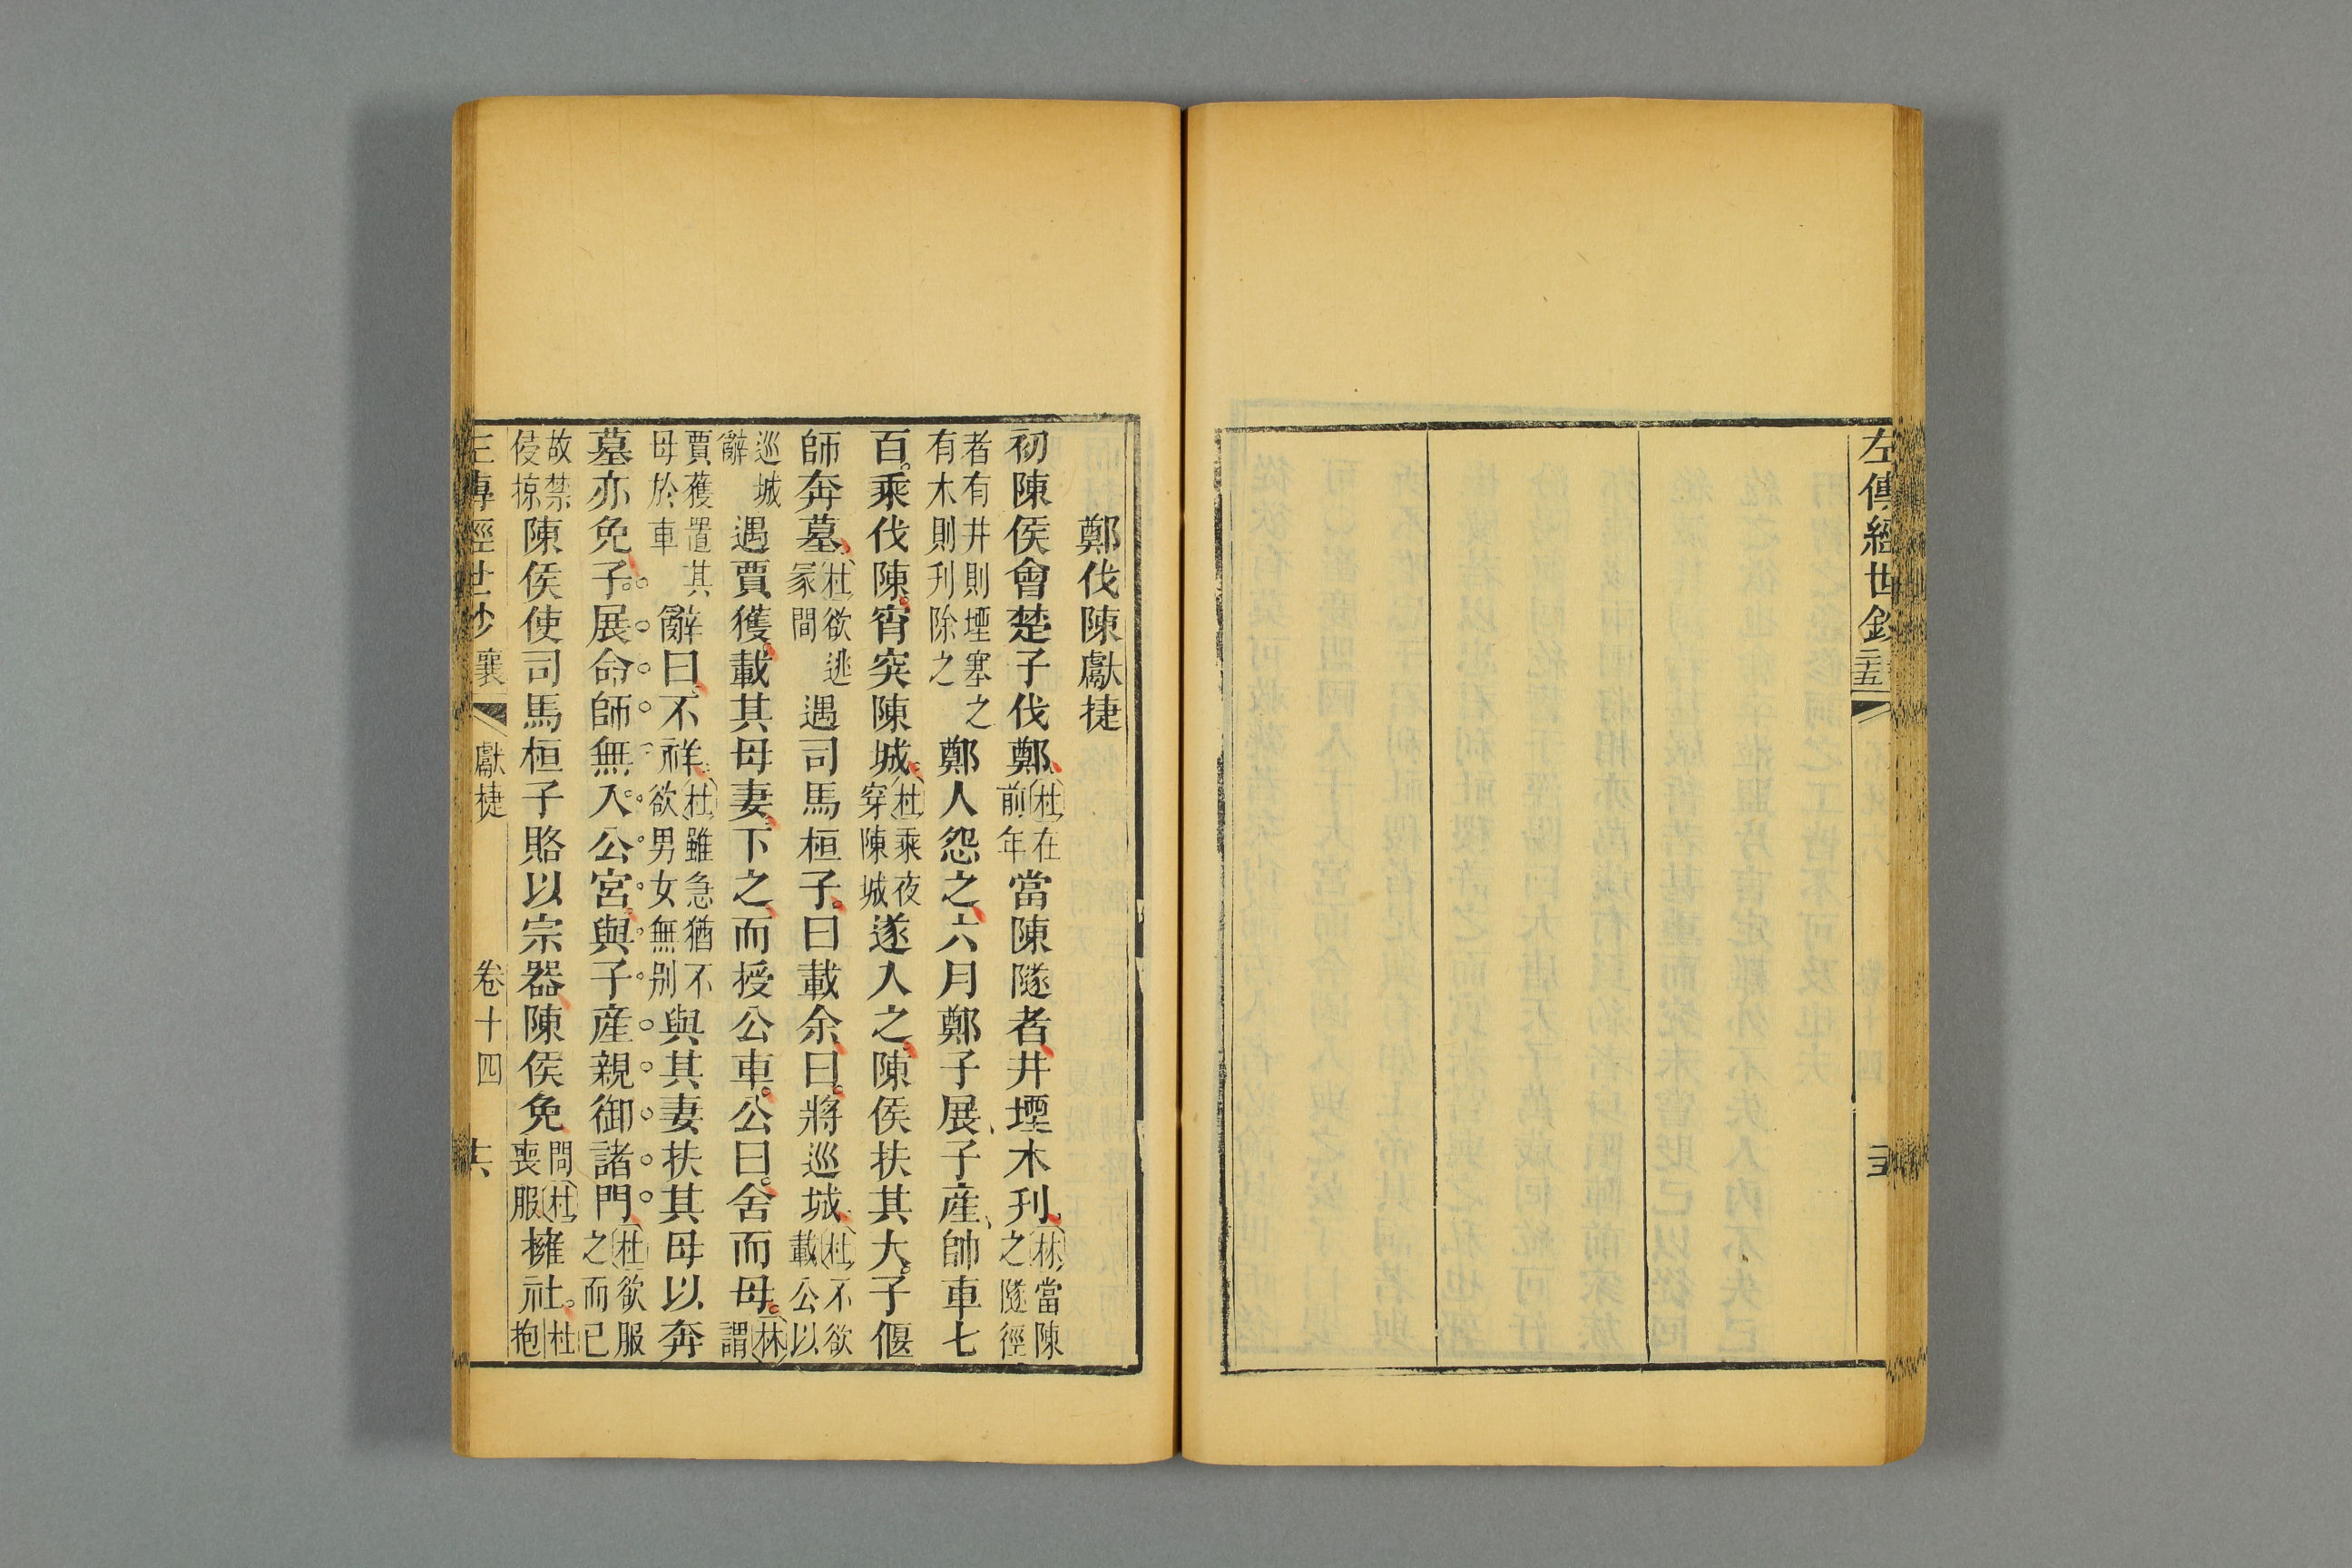 左傳經世鈔
二十五
鄭伐陳獻捷
初陳侯會楚子伐鄭杜在前年當陳隧者井堙木刊林當陳之隧徑
者有井則堙塞之有木則刊除之鄭人怨之六月鄭子展子產帥車七
百乘伐陳宵突陳城杜乘夜穿陳城遂入之陳侯扶其大子偃
師奔墓杜欲逃冢間遇司馬桓子曰載余曰將巡城杜不欲載公以
巡城辭遇賈獲載其母妻下之而授公車公曰舍而母林謂
賈獲置其母於車辭曰不祥杜雖急猶不欲男女無別與其妻扶其母以奔
墓亦免子展命師無入公宮與子產親御諸門杜欲服之而已
故禁侵掠陳侯使司馬桓子賂以宗器陳侯免問喪服杜擁社杜抱
左傳經世鈔 襄 獻捷 卷十四